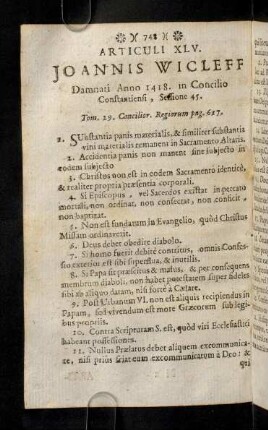 748
ARTICULI XLV.
JOANNIS WICLEFF
Damnati Anno 1418. in Concilio
Constantiensi, Sessione 45.
Tom. 29. Concilior. Regiorum pag. 627.
1. SUbstantia panis materialis, & similiter substantia
vini materialis remanent in Sacramento Altaris.
2. Accidentia panis non manent sine subjecto in
eodem subjecto
3. Christus non est in eodem Sacramento identicè
& realiter propria præsentia corporali.
4. Si Episcopus, vel Sacerdos existat in peccato
mortali, non ordinat, non consecrat, non conficit,
non baptizat.
5. Non est fundatum in Evangelio, quòd Christus
Missam ordinaverit.
6. Deus debet obedire diabolo.
7. Si homo fuerit debitè contritus, omnis Confes-
sio exterior est sibi superflua, & inutilis.
8. Si Papa sit præscitus & malus, & per consequens
membrum diaboli, non habet potestatem super fideles
sibi ab aliquo datam, nisi fortè à Cæsare.
9. Post Urbanum VI. non est aliquis recipiendus in
Papam, sed vivendum est more Græcorum sub leg
ibus propriis.
10. Contra Scripturam S. est, quòd viri Ecclesiastici
habeant possessiones.
11. Nullus Prælatus debet aliquem excommunica-
re, nisi prius sciat eum excommunicatum à Deo: &
qui